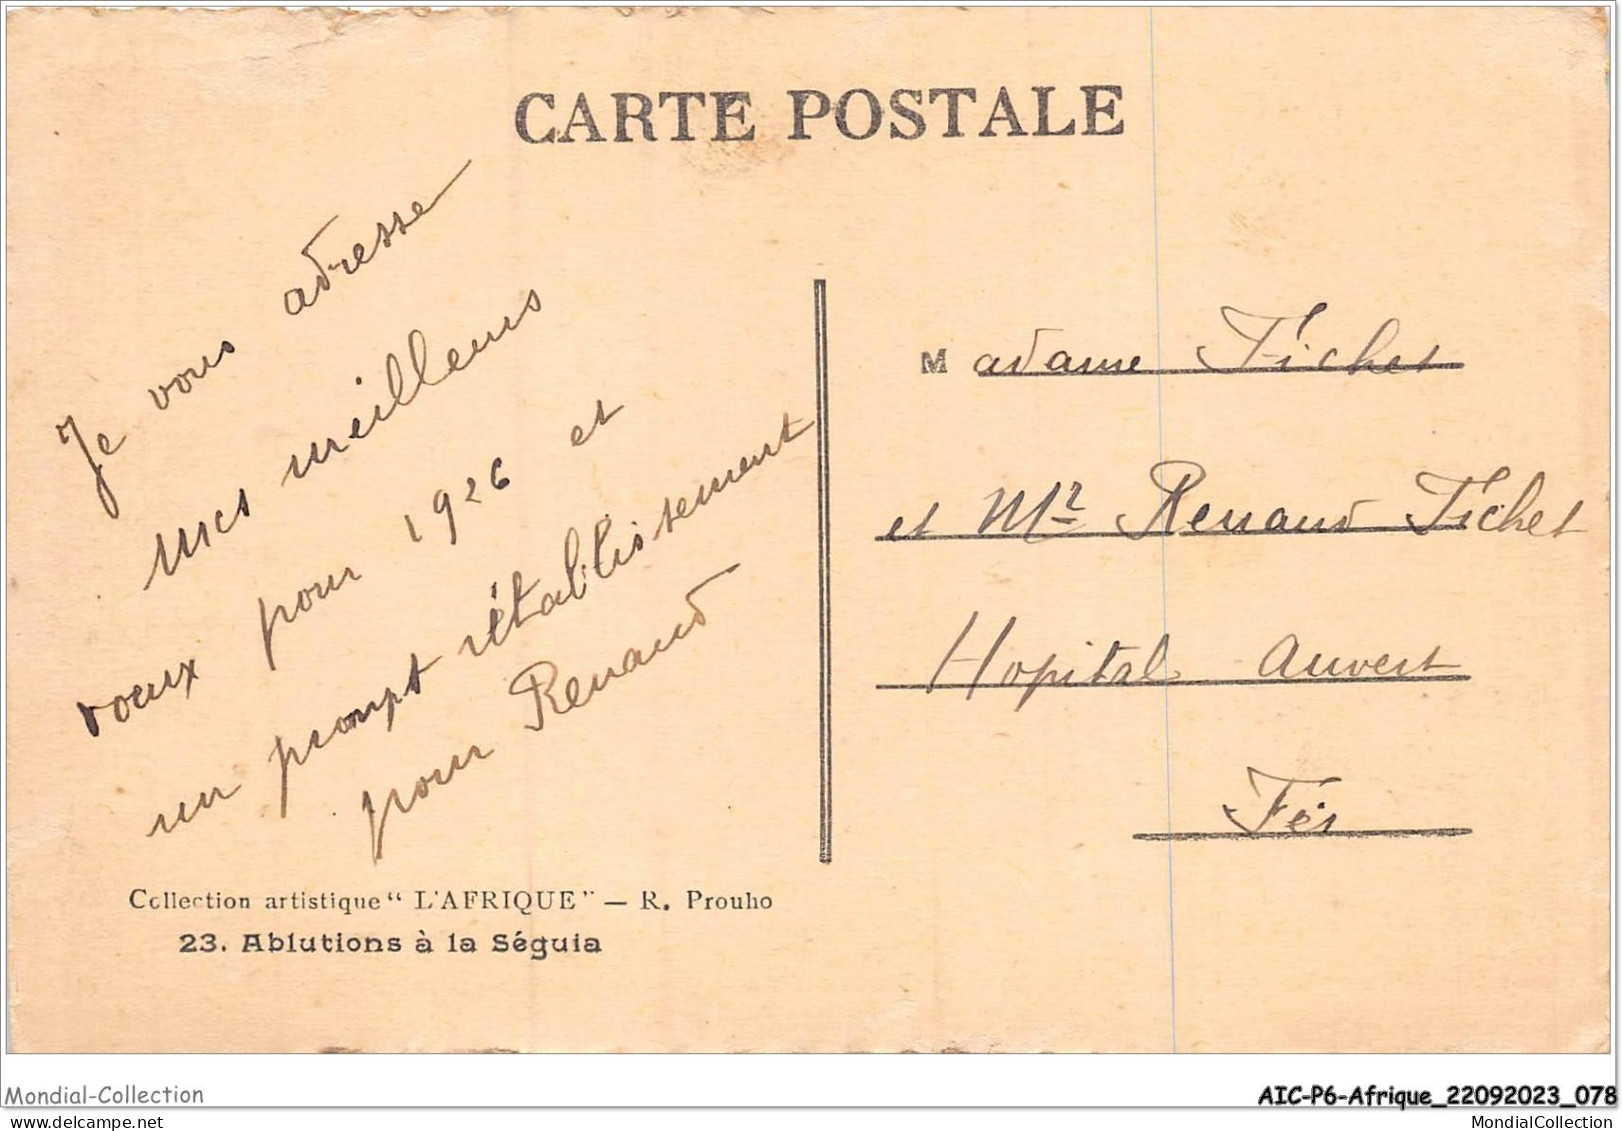 CARTE POSTALE
Je vous adresse
mes meilleurs
voeux pour 1926 et
un prompt rétablissement
pour Renaud
Madame Fichet
et Mr Renaud Fichet
Hopital Auvert
Fès
Collection artistique " L'AFRIQUE " — R. Prouho
23. Ablutions à la Séguia
Mondial-Collection
AIC-P6-Afrique_22092023_078
MondialCollection